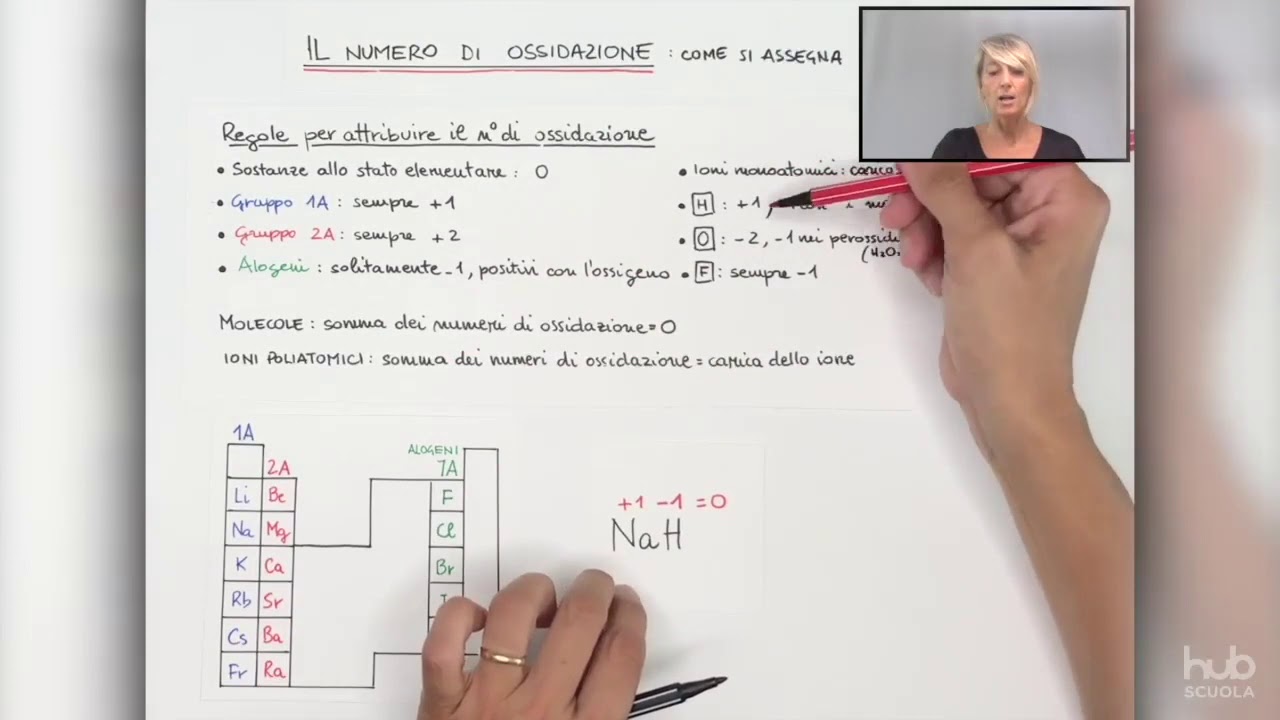 IL NUMERO DI OSSIDAZIONE : COME SI ASSEGNA
Regole per attribuire il n° di ossidazione
• Sostanze allo stato elementare : 0
• Gruppo 1A : sempre +1
• Gruppo 2A : sempre +2
• Alogeni : solitamente -1, positivi con l'ossigeno
• Ioni monoatomici : carica
• H : +1,
• O : -2, -1 nei perossidi
(H2O2
• F : sempre -1
MOLECOLE : somma dei numeri di ossidazione = 0
IONI POLIATOMICI : somma dei numeri di ossidazione = carica dello ione
1A
2A
ALOGENI
7A
Li Be F
Na Mg Cl
K Ca Br
Rb Sr
Cs Ba
Fr Ra
+1 -1 = 0
NaH
hub
SCUOLA